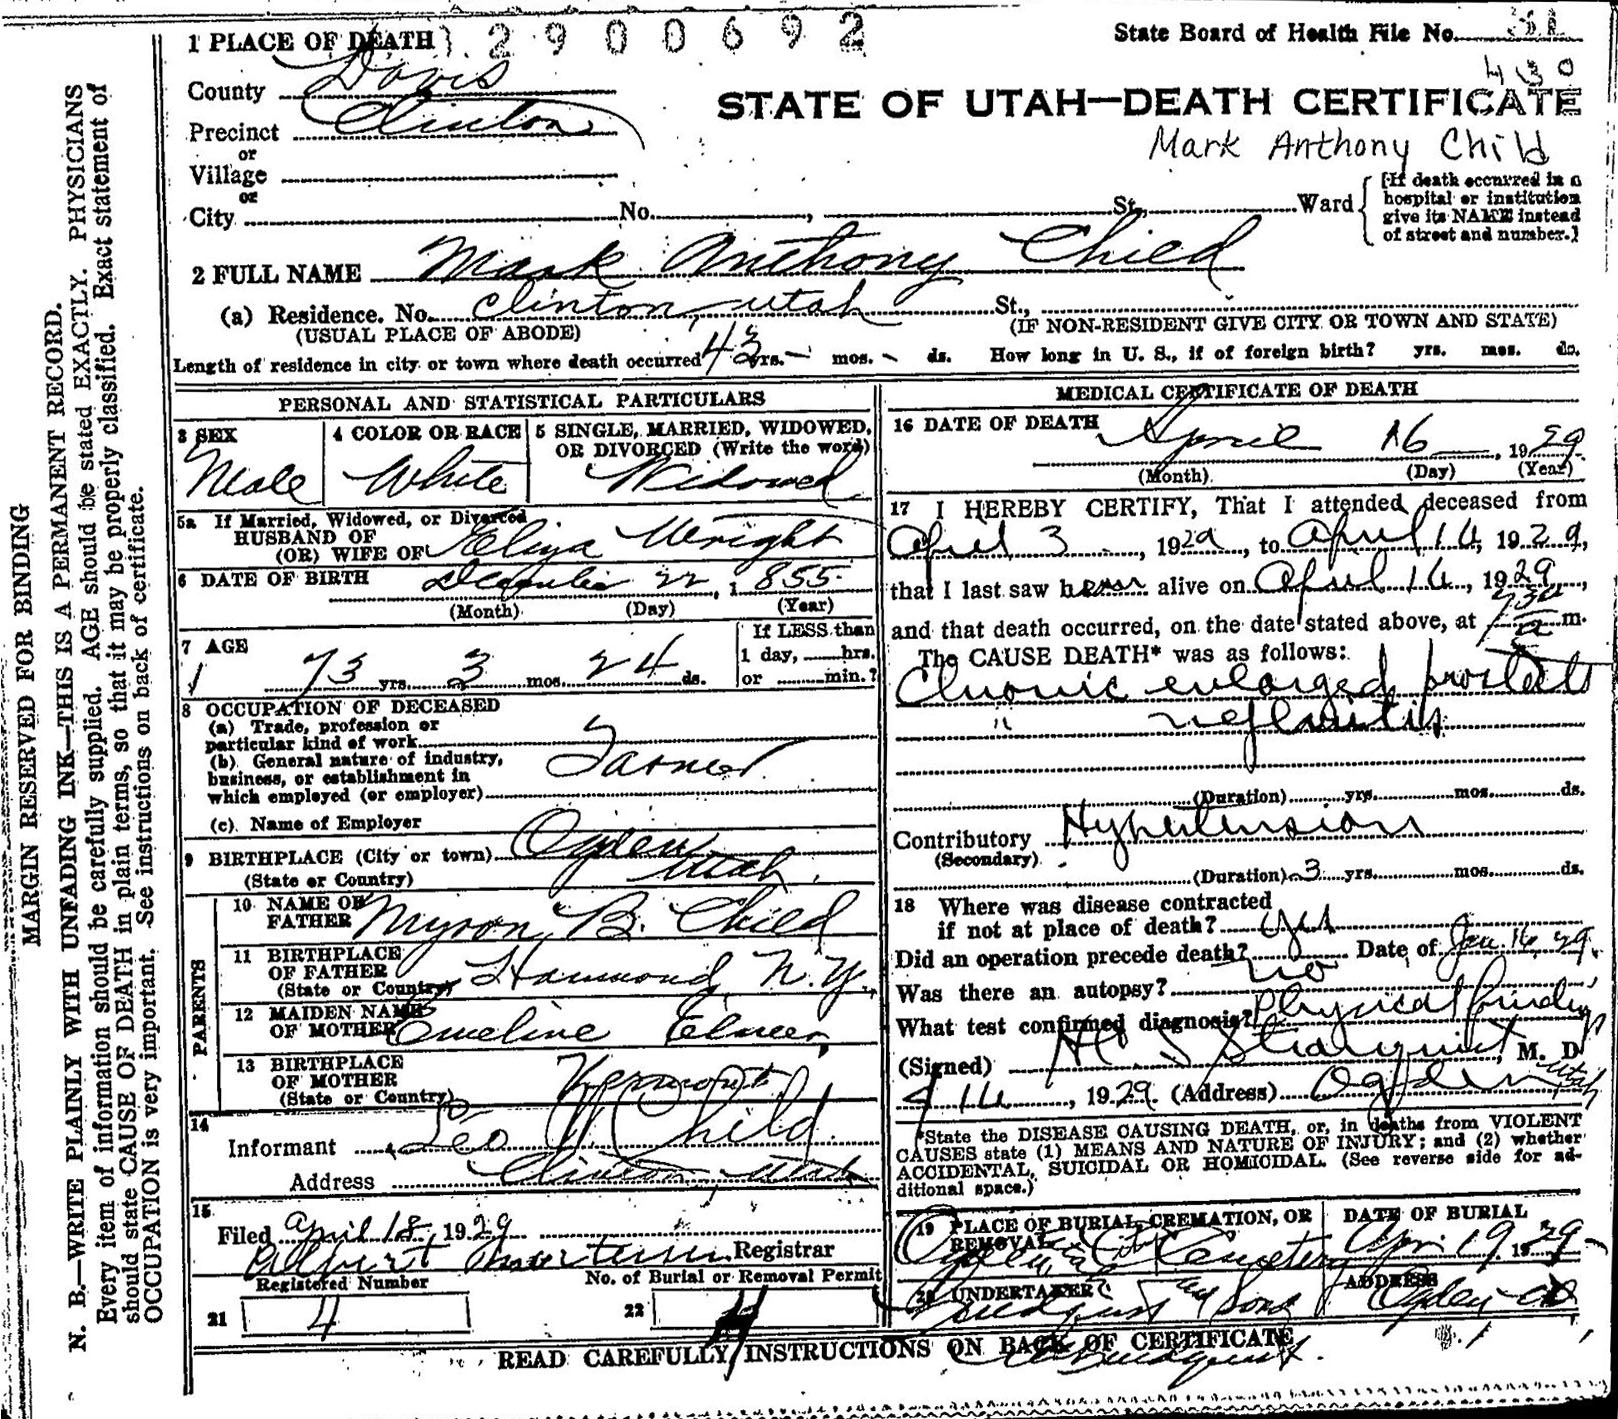 1 PLACE OF DEATH
2900692
State Board of Health File No.
County Davis
STATE OF UTAH—DEATH CERTIFICATE
Precinct Clinton
Mark Anthony Child
or
Village
or
City No. , St. Ward
[If death occurred in a
hospital or institution
give its NAME instead
of street and number.]
2 FULL NAME Mark Anthony Child
(a) Residence. No. Clinton, Utah St.,
(USUAL PLACE OF ABODE) (IF NON-RESIDENT GIVE CITY OR TOWN AND STATE)
Length of residence in city or town where death occurred 43 yrs. - mos. - ds. How long in U. S., if of foreign birth? yrs. mos. ds.
PERSONAL AND STATISTICAL PARTICULARS
3 SEX
Male
4 COLOR OR RACE
White
5 SINGLE, MARRIED, WIDOWED,
OR DIVORCED (Write the word)
Widowed
5a If Married, Widowed, or Divorced
HUSBAND OF
(OR) WIFE OF Eliza Wright
6 DATE OF BIRTH December 22, 1855
(Month) (Day) (Year)
7 AGE
73 yrs. 3 mos. 24 ds.
If LESS than
1 day, hrs.
or min.?
8 OCCUPATION OF DECEASED
(a) Trade, profession or
particular kind of work
(b) General nature of industry,
business, or establishment in
which employed (or employer)
Farmer
(c) Name of Employer
9 BIRTHPLACE (City or town) Ogden
(State or Country) Utah
PARENTS
10 NAME OF
FATHER Myron B. Child
11 BIRTHPLACE
OF FATHER
(State or Country) Hammond, N.Y.
12 MAIDEN NAME
OF MOTHER Emeline Elmer
13 BIRTHPLACE
OF MOTHER
(State or Country) Vermont
14
Informant Leo W Child
Address Clinton, Utah
15
Filed April 18, 1929
Albert Registrar
Registered Number
21 4
No. of Burial or Removal Permit
22 4
MEDICAL CERTIFICATE OF DEATH
16 DATE OF DEATH April 16, 1929
(Month) (Day) (Year)
17 I HEREBY CERTIFY, That I attended deceased from
April 3, 1929, to April 16, 1929,
that I last saw h alive on April 16, 1929,
and that death occurred, on the date stated above, at 730 a m.
The CAUSE DEATH* was as follows:
Chronic enlarged prostate
" nephritis
(Duration) yrs. mos. ds.
Contributory Hypertension
(Secondary)
(Duration) 3 yrs. mos. ds.
18 Where was disease contracted
if not at place of death?
Did an operation precede death? yes Date of Jan. 16, 29.
Was there an autopsy? no
What test confirmed diagnosis? Physical findings
(Signed) , M. D.
4 16, 1929. (Address) Ogden Utah
*State the DISEASE CAUSING DEATH, or, in deaths from VIOLENT
CAUSES state (1) MEANS AND NATURE OF INJURY; and (2) whether
ACCIDENTAL, SUICIDAL OR HOMICIDAL. (See reverse side for ad-
ditional space.)
19 PLACE OF BURIAL, CREMATION, OR
REMOVAL
Ogden City Cemetery
DATE OF BURIAL
Apr. 19, 1929
20 UNDERTAKER
Lindquist and Sons
ADDRESS
Ogden
READ CAREFULLY INSTRUCTIONS ON BACK OF CERTIFICATE
MARGIN RESERVED FOR BINDING
N. B.—WRITE PLAINLY WITH UNFADING INK—THIS IS A PERMANENT RECORD.
Every item of information should be carefully supplied. AGE should be stated EXACTLY. PHYSICIANS
should state CAUSE OF DEATH in plain terms, so that it may be properly classified. Exact statement of
OCCUPATION is very important. See instructions on back of certificate.